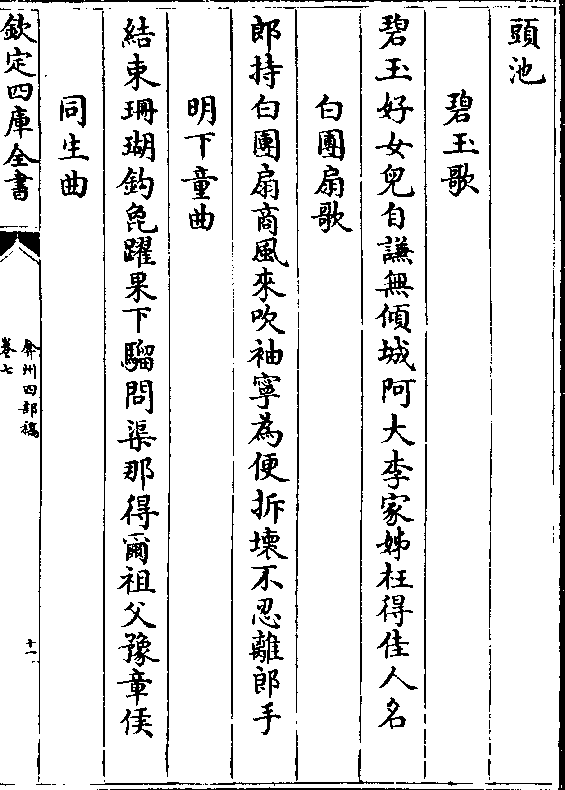 頭池
碧玉歌
碧玉好女兒自謙無傾城阿大李家姊枉得佳人名
白團扇歌
郎持白團扇商風來吹袖寧為便拆壞不忍離郎手
明下童曲
結束珊瑚鈎㲋躍果下騮問渠那得爾祖父豫章侯
同生曲
欽定四庫全書
弇州四部稿
卷七
十一